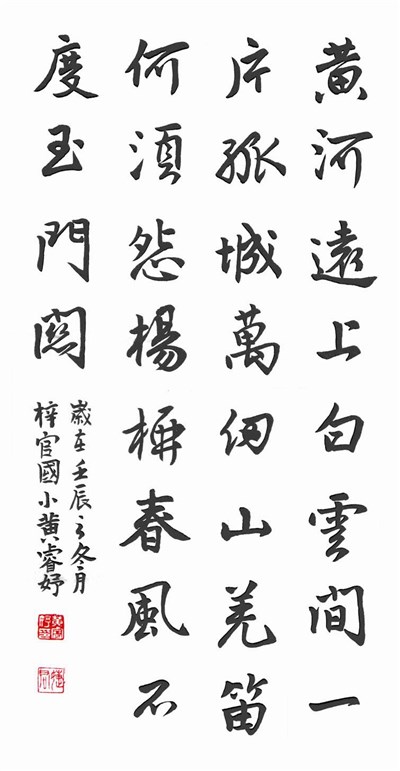 黃河遠上白雲間一
片孤城萬仞山羌笛
何須怨楊柳春風不
度玉門關
歲在壬辰之冬月
梓官國小黃睿妤